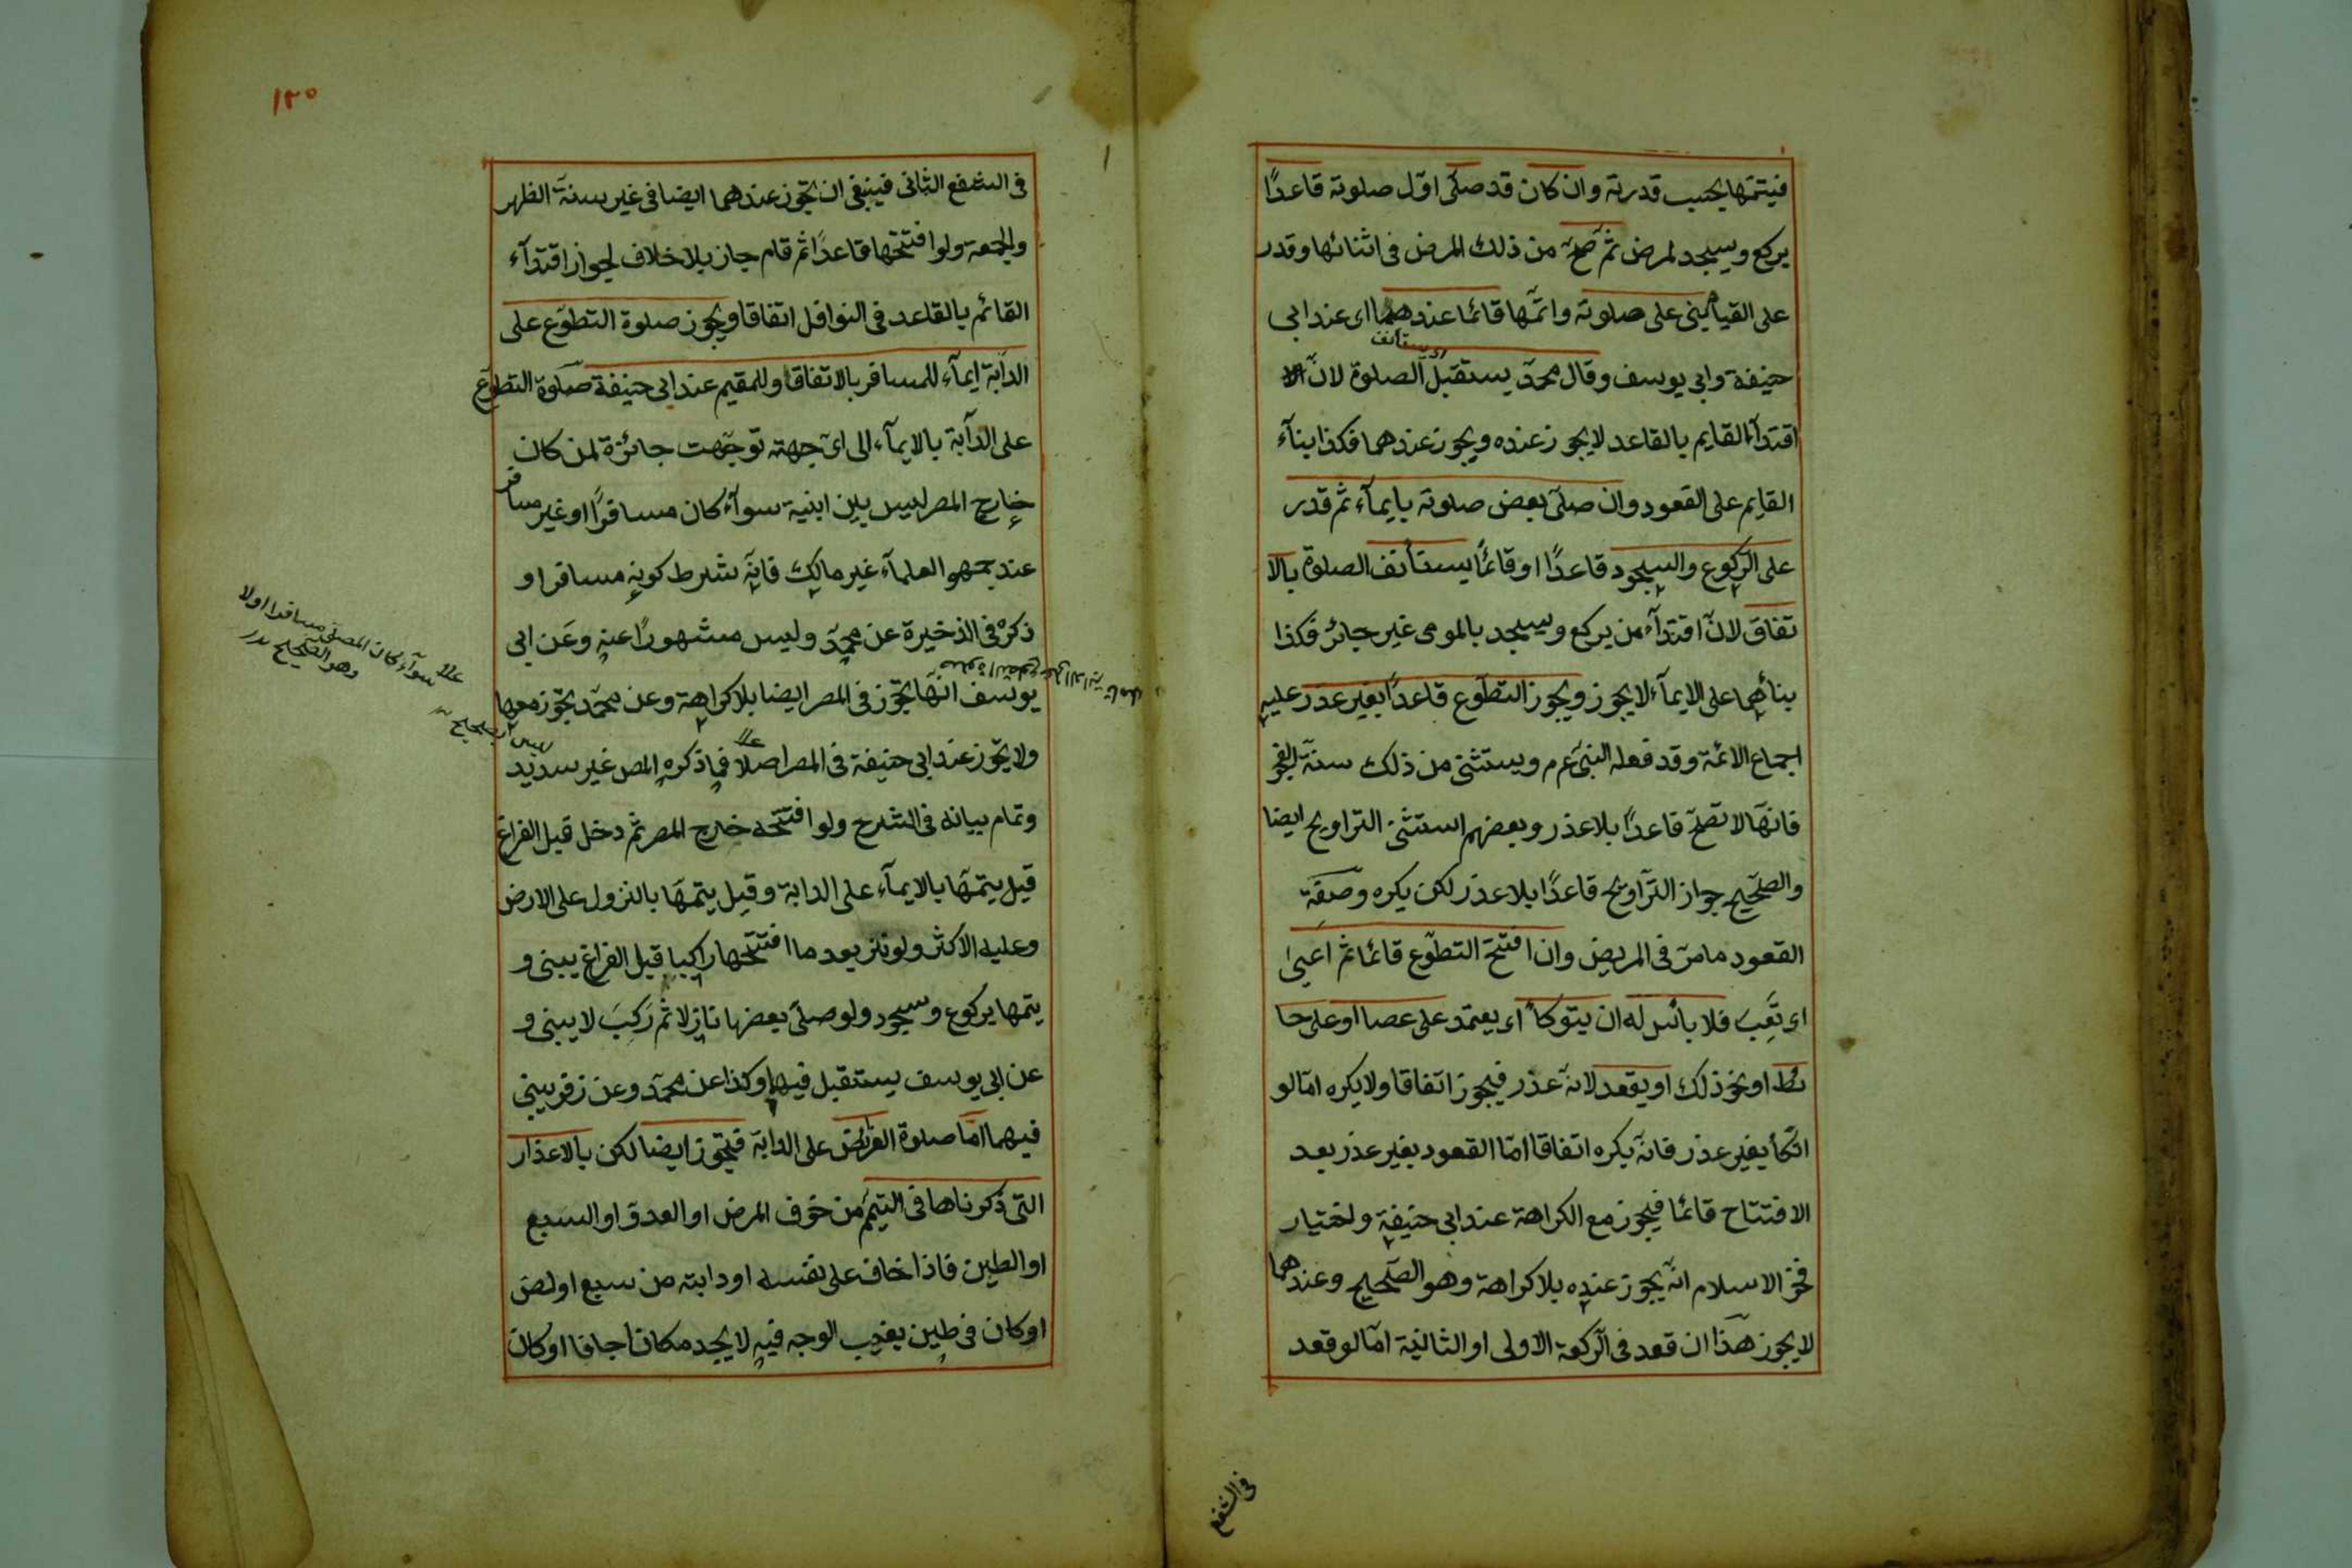 فيتمّها بحسب قدرته وان كان قد صلّى اوّل صلوته قاعدًا
يركع ويسجد لمرض ثمّ صحّ من ذلك المرض في اثنائها وقدر
على القيام بنى على صلوته واتمّها قائما عندهما اى عند ابى
اى يستأنف
حنيفة وابى يوسف وقال محمّد يستقبل الصلوة لانّ
اقتدآء القايم بالقاعد لا يجوز عنده ويجوز عندهما فكذا بنآء
القايم على القعود وان صلّى بعض صلوته بايمآء ثم قدر
على الرّكوع والسجود قاعدًا او قائمًا يستأنف الصلوة بالا
تفاق لانّ اقتدآء من يركع ويسجد بالمومى غير جائز فكذا
بنائهما على الايمآء لا يجوز ويجوز التطوّع قاعدًا بغير عذر عليه
اجماع الائمّة وقد فعله النبىّ عم م ويستثنى من ذلك سنّة الفجر
فانّها لا تصحّ قاعدًا بلا عذر وبعضهم استثنى التراويح ايضا
والصّحيح جواز التّراويح قاعدًا بلا عذر لكن يكره وصفة
القعود ما مرّ في المريض وان افتتح التطوّع قائما ثم اعيى
اى تَعِبَ فلا بائس له ان يتوكأ اى يعتمد على عصا او على حا
ئط او نحو ذلك او يقعد لانّه عذر فيجوز اتفاقا ولا يكره امّا لو
اتّكأ بغير عذر فانّه يكره اتفاقا امّا القعود بغير عذر بعد
الافتتاح قائما فيجوز مع الكراهة عند ابى حنيفة واختيار
فخر الاسلام انّه يجوز عنده بلا كراهة وهو الصّحيح وعندهما
لا يجوز هذا ان قعد في الرّكعة الاولى او الثانية امّا لو قعد
في الشفع
١٣٥
في الشفع الثانى فينبغى ان تجوز عندهما ايضا في غير سنّة الظهر
والجمعة ولو افتتحها قاعدًا ثم قام جاز بلا خلاف لجواز اقتدآء
القائم بالقاعد في النوافل اتفاقا ويجوز صلوة التطوّع على
الدابّة ايمآء للمسافر بالاتفاق وللمقيم عند ابى حنيفة صلوة التطوّع
على الدآبّة بالايمآء الى اىّ جهته توجّهت جائزة لمن كان
خارج المصر ليس بين ابنية سوآء كان مسافرًا او غير مسافر
عند جمهو العلمآء غير مالك فانّه شرط كونه مسافرا و
ذكره في الذخيرة عن محمّد وليس مشهورًا عنه وعَن ابى
يوسف انّها تجوز في المصر ايضا بلا كراهة وعن محمّد تجوز معها
ولا يجوز عند ابى حنيفة في المصر اصلا فما ذكره المص غير سديد
وتمام بيانه في الشرح ولو افتتحه خارج المصر ثم دخل قبل الفراغ
قيل يتمّها بالايمآء على الدابة وقيل يتمّها بالنزول على الارض
وعليه الاكثر ولو نزل بعد ما افتتحها راكبا قبل الفراغ يبنى و
يتمها بركوع وسجود ولو صلّى بعضها نازلا ثم رَكِبَ لا يبنى و
عن ابى يوسف يستقبل فيهما وكذا عن محمّد وعن زفر يبنى
فيهما امّا صلوة الفرائض على الدابّة فيجوز ايضا لكن بالاعذار
التى ذكرناها في التيمّم من خوف المرض او العدوّ او السبع
او الطين فاذا خاف على نفسه او دابته من سبع او لصّ
او كان في طين يغيب الوجه فيه لا يجد مكانا جافا او كان
سوآء كان المصلّى مسافرا اولا
وهو الصّحيح
ليس بصحيح
صلوة التطوع على الدابّة